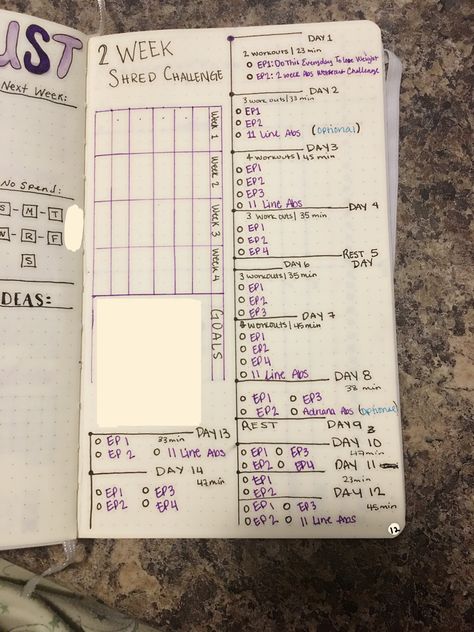 UST
Next Week:
No Spend:
S - M - T
W - R - F
S
IDEAS:
2 WEEK
SHRED CHALLENGE
Week 1
Week 2
Week 3
Week 4
GOALS
DAY 1
2 workouts | 23 min
EP1: Do This Everyday To lose Weight
EP2: 2 week Abs Workout Challenge
DAY 2
3 workouts | 33 min
EP1
EP2
11 Line Abs (optional)
DAY 3
4 workouts | 45 min
EP1
EP2
EP3
11 Line Abs
DAY 4
3 workouts | 35 min
EP1
EP2
EP4
REST 5
DAY
DAY 6
3 workouts | 35 min
EP1
EP2
EP3
DAY 7
workouts | 45 min
EP1
EP2
EP4
11 Line Abs
DAY 8
38 min
EP1 EP3
EP2 Adriana Abs (optional)
REST DAY 9
DAY 10
47 min
EP1 EP3
EP2 EP4
DAY 11
23 min
EP1
EP2
DAY 12
45 min
EP1 EP3
EP2 11 Line Abs
DAY 13
33 min
EP1
EP2 11 Line Abs
DAY 14
42 min
EP1 EP3
EP2 EP4
12